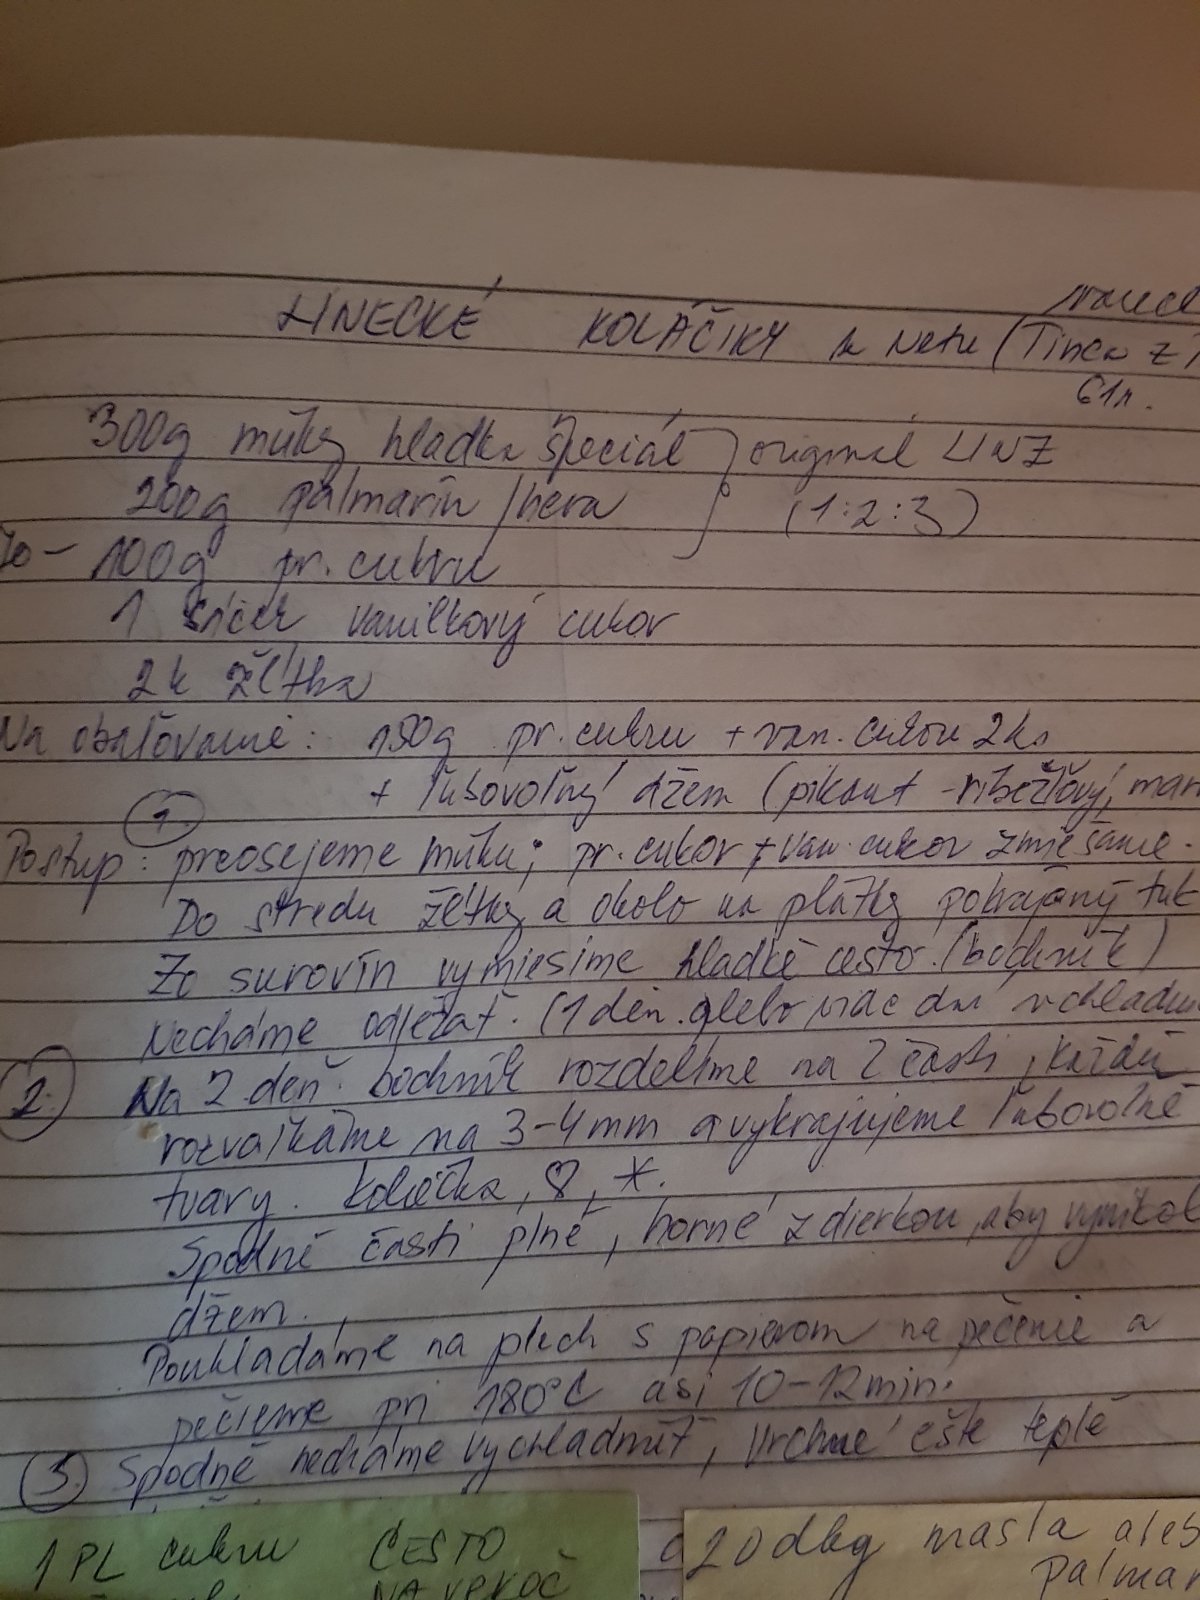 LINECKÉ KOLÁČIKY z Netu (Tinca z
61r.
300g múky hladka špeciál } originál LINZ
200g palmarín/hera (1:2:3)
70-100g pr. cukru
1 sáček vanilkový cukor
2k žĺtka
Na obaľovanie: 150g pr. cukru + van. cukru 2ks
+ ľubovoľný džem (pikant - ríbezľový, mar
1.
Postup: preosejeme múku; pr. cukor + van. cukor zmiešame.
Do stredu žĺtky a okolo na plátky pokrájaný tuk
Zo surovín vymiesime hladké cesto. (bochník)
Necháme odležať. (1 deň alebo viac dní v chladn
2. Na 2 deň bochník rozdelíme na 2 časti, každú
rozvaľkáme na 3-4mm a vykrajujeme ľubovoľné
tvary. kolečka, ♡, *.
Spodné časti plné, horné z dierkou, aby vynikol
džem.
Poukladáme na plech s papierom na pečenie a
pečieme pri 180°C asi 10-12min.
3. Spodné necháme vychladnúť, vrchné ešte teplé
1PL cukru CESTO
NA VEKOČ
20dkg masla aleb
palmar